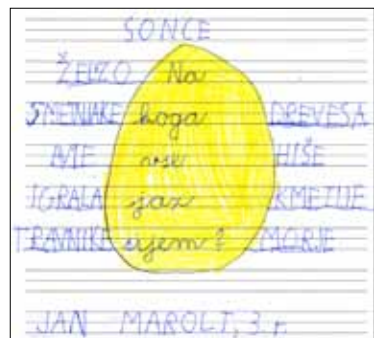 SONCE
ŽELEZO Na
SMETNJAKE koga DREVESA
AVTE vse HIŠE
IGRALA jaz KMETIJE
TRAVNIKE sijem? MORJE
JAN MAROLT, 3. r.